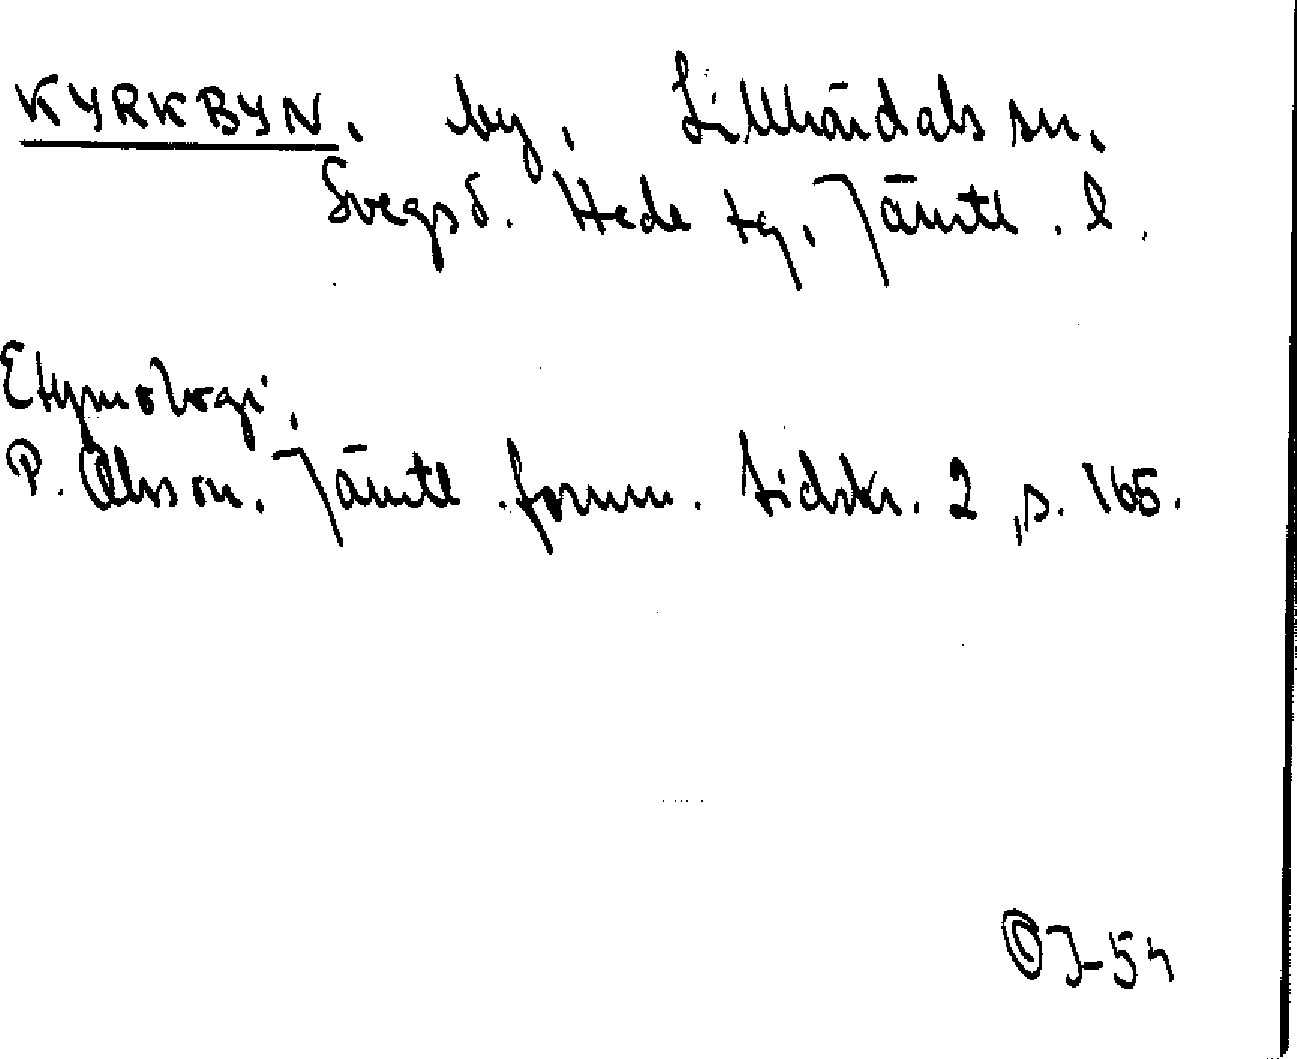 KYRKBYN. by. Lillhärdals sn.
Svegs d. Hede tg. Jämtl. l.
Etymologi.
P. Olsson. Jämtl. fornm. tidskr. 2, s. 165.
OJ-54